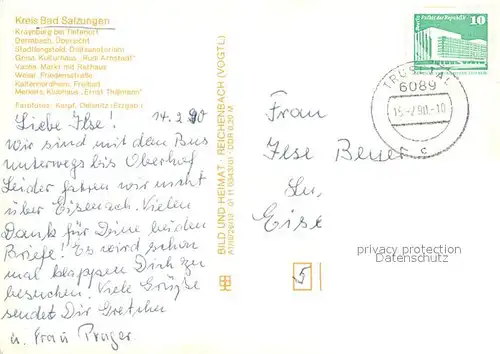 Kreis Bad Salzungen
Kraynberg bei Tiefenort
Dermbach, Übersicht
Stadtlengsfeld, Diätsanatorium
Geisa, Kulturhaus "Rudi Arnstadt"
Vacha, Markt mit Rathaus
Weilar, Friedensstraße
Kaltennordheim, Freibad
Merkers, Klubhaus "Ernst Thälmann"
Farbfotos: Karpf, Oelsnitz (Erzgeb.)
14.2.90
Liebe Ilse!
wir sind mit dem Bus
unterwegs bis Oberhof
Leider fahren wir nicht
über Eisenach. Vielen
Dank für Deine beiden
Briefe! Es wird schon
mal klappen Dich zu
besuchen. Viele Grüße
sendet Dir Gretchen
u. Frau Pruger.
BILD UND HEIMAT REICHENBACH (VOGTL)
A1/B/261/12 01 11 0343/01 CDR 0,20 M
10
Berlin, Palast der Republik
TRUSETAL
6089
15-2.90.-10
c
Frau
Ilse Beyer
Eise
5
privacy protection
Datenschutz